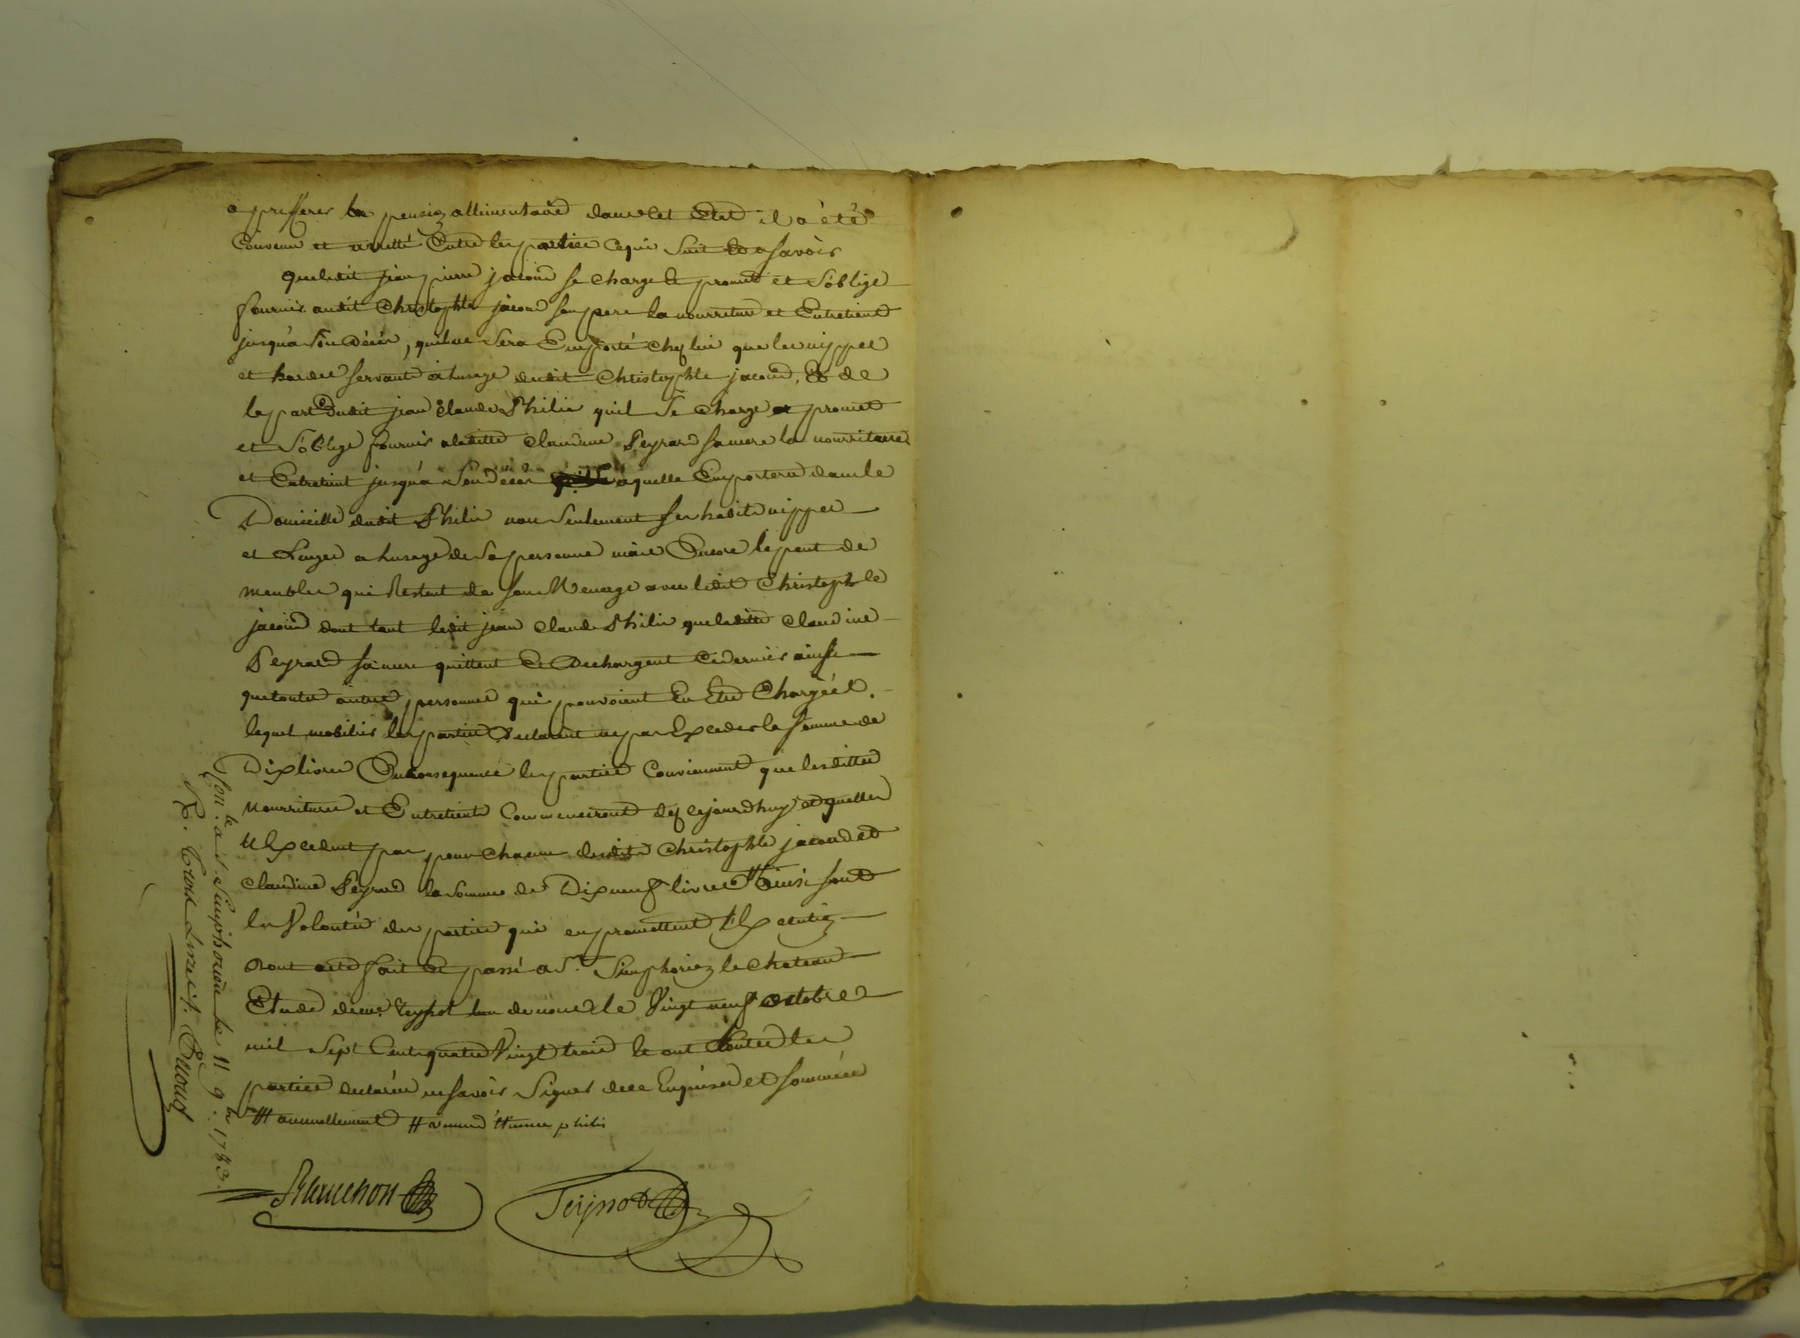 a presserer la pension allimentaire dans cet Etat il a été
Convenu et arretté Entre les parties ce qui Suit Scavoir
que ledit jean pierre jacoud se charge promet et S'oblige
fournir audit Christophle jacoud son pere la nourriture et Entretient
jusqu'a Son décés, qu'il ne Sera Emporté chez lui que les nippes
et hardes servants a lusage dudit Christophle jacoud, Et de
la part dudit jean Claude Philis qu'il Se charge promet
et S'oblige fournir a laditte Claudine Peyrard sa mere la nourriture
et Entretient jusqu'a Son décés laquelle Emportera dans le
Domicille dudit Philis non Seulement ses habits nippes
et Linges a lusage de Sa personne mais Encore le peut de
meubles qui Restent de son Menage avec ledit Christophle
jacoud dont tant ledit jean Claude Philis que laditte Claudine
Peyrard sa mere quittent Et Dechargent ce dernier ainsi
que toutes autres personnes qui pouvoient En Etre Chargées.
lequel mobilier les parties Declarent ne pas Exceder la somme de
Dix livres En consequence les parties Conviennent que lesdittes
Nourritures et Entretients Commenceront dés ce jourdhuy et quelles
N'Excedent pas pour chacun desdits Christophle jacoud et
Claudine Peyrard la Somme de Dix neuf livres # ainsi sont
les Volontés des parties qui en promettent l'Execution
Dont acte fait Et passé a St. Simphorien le Chateau
Etude de me. Teyssot lun de nous le Vingt neuf octobre
mil Sept Cent quatre Vingt trois Et ont toutes les
parties declarées ne savoir Signer de ce Enquises et sommées
# annuellement #
Planchon Teyssot
Con.lé a St. Simphorien le 11 9.bre 1783.
R.